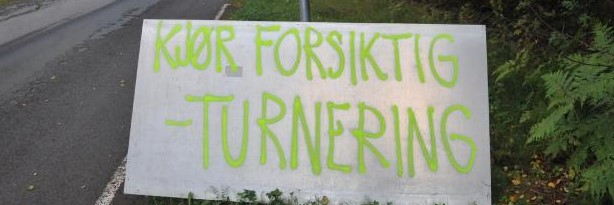 KJØR FORSIKTIG
-TURNERING